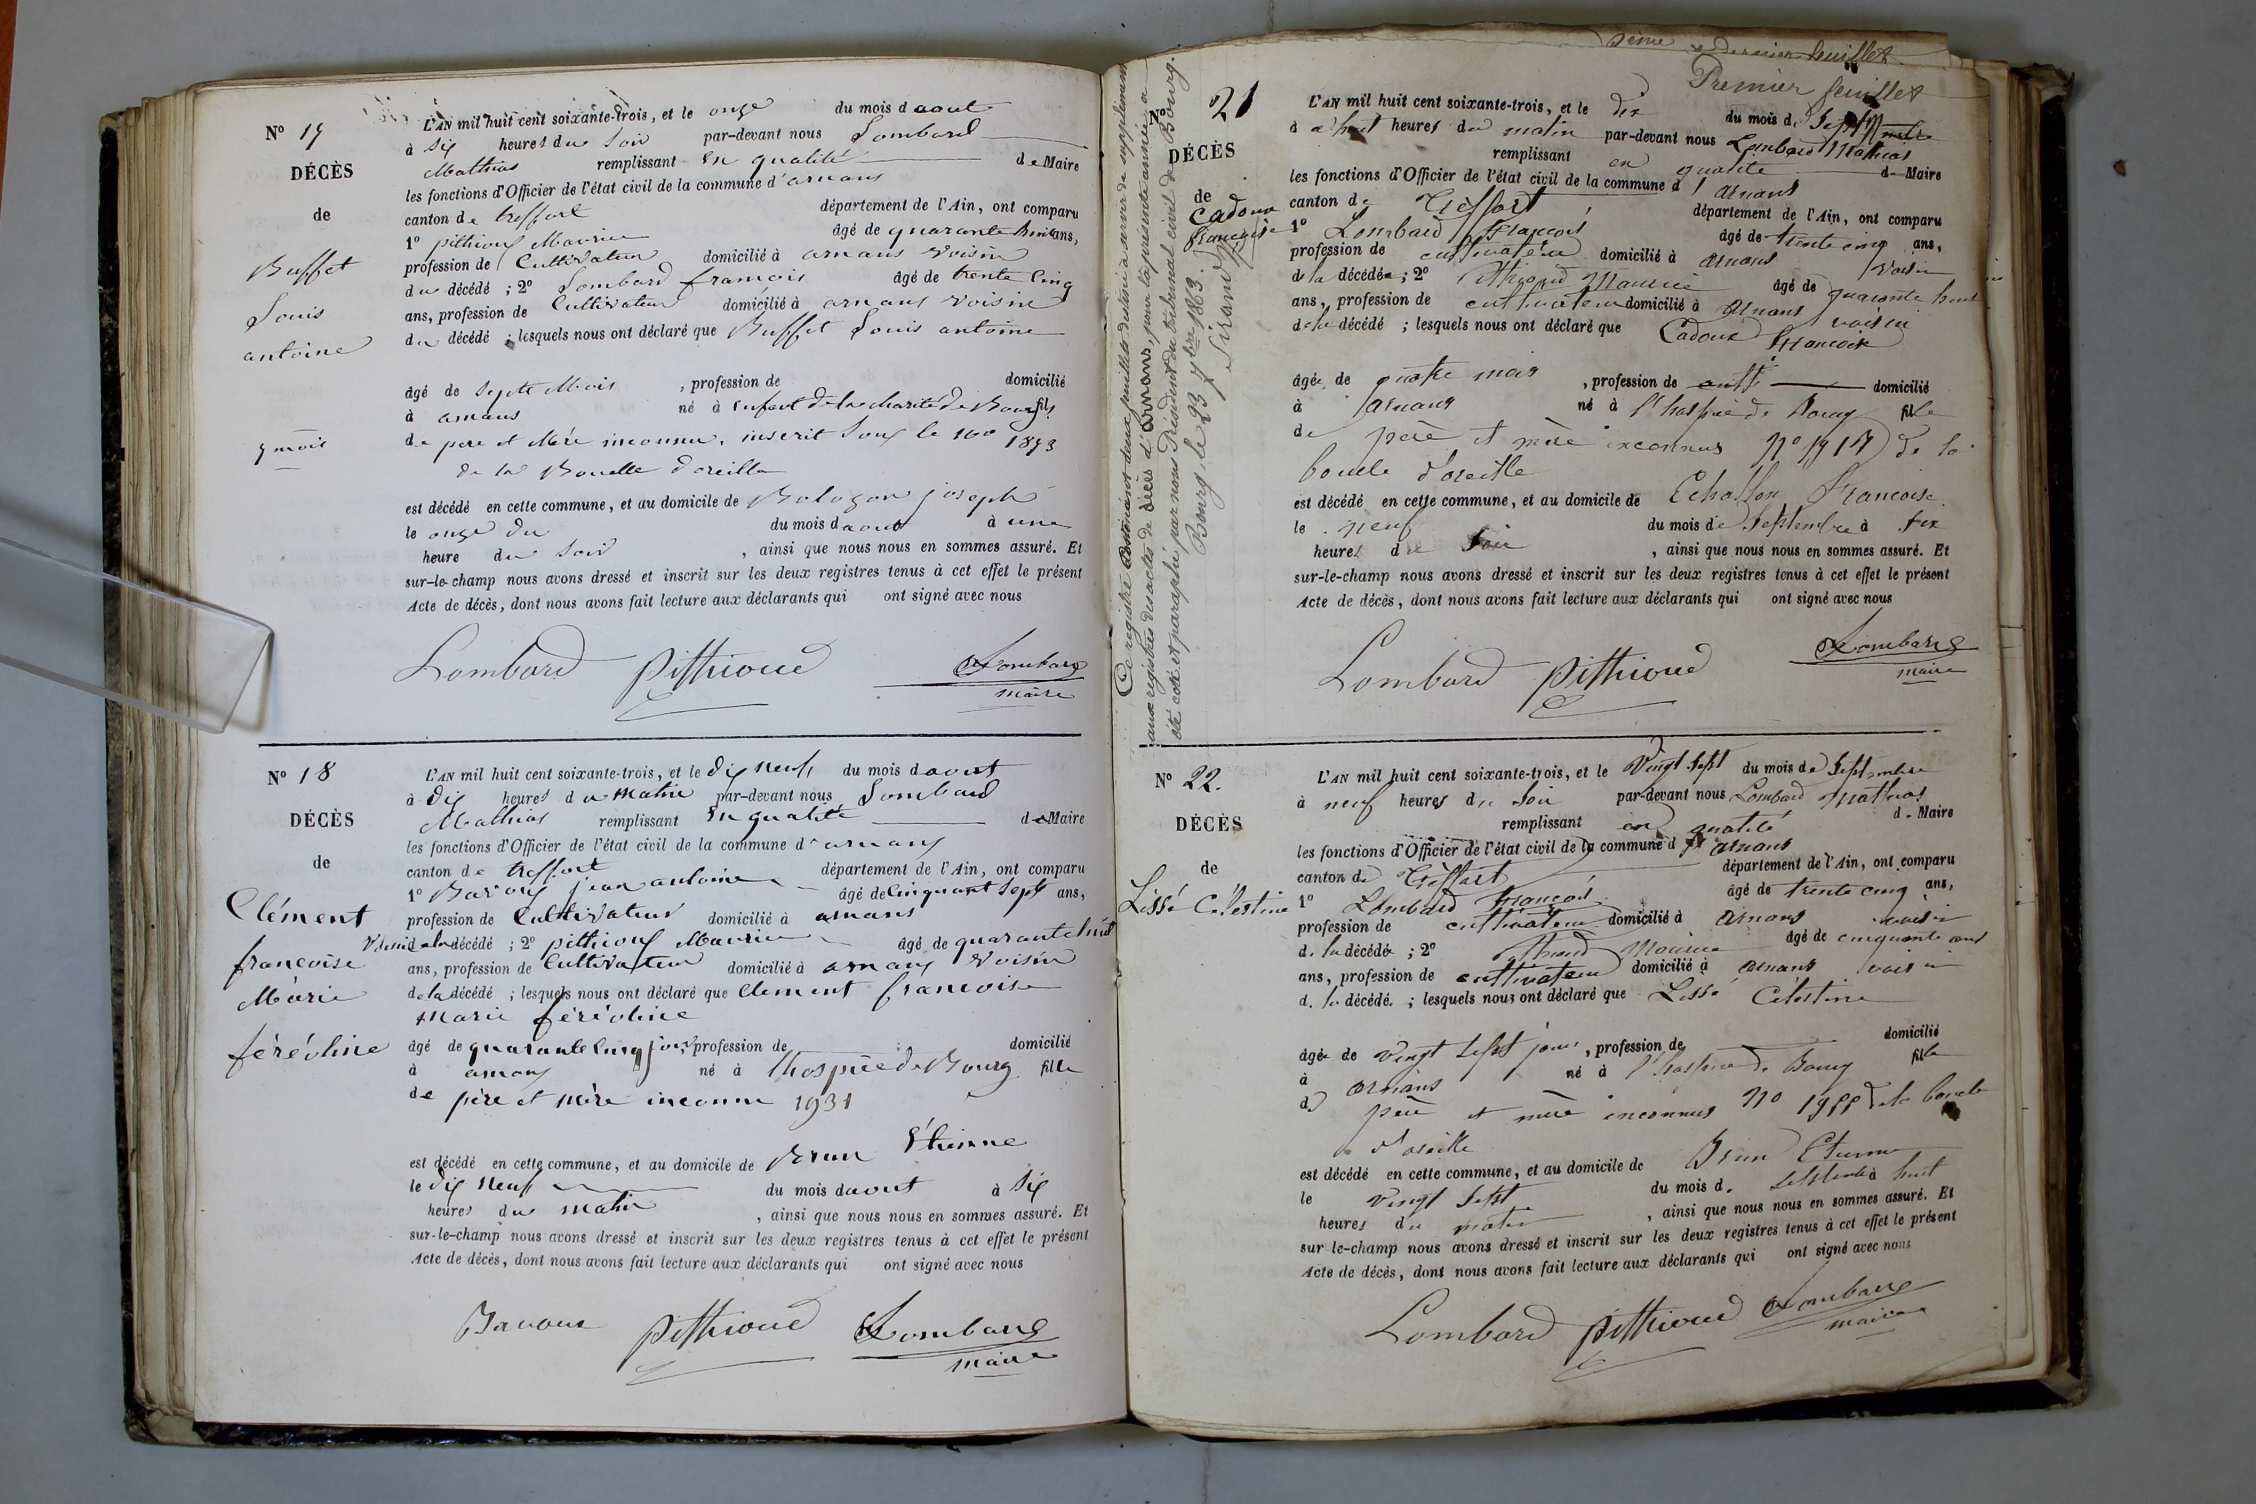 N° 17
DÉCÈS
de
Buffet
Louis
antoine
7 mois
L'AN mil huit cent soixante-trois, et le onze du mois d aout
à six heures du soir par-devant nous Lombard
Mathias remplissant en qualité de Maire
les fonctions d'Officier de l'état civil de la commune d'arnans
canton de treffort département de l'Ain, ont comparu
1° pithioux Maurice âgé de quarante huit ans,
profession de Cultivateur domicilié à arnans voisin
du décédé ; 2° Lombard francois âgé de trente cinq
ans, profession de Cultivateur domicilié à arnans voisin
du décédé ; lesquels nous ont déclaré que Buffet Louis antoine
âgé de Septe Mois , profession de domicilié
à arnans né à enfant de la charité de Bourg fils
de pere et Mére inconnu, inscrit Sous le no 1873
de la Boucle d'oreille
est décédé en cette commune, et au domicile de Bolozon joseph
le onze du du mois d aout à une
heure du Soir , ainsi que nous nous en sommes assuré. Et
sur-le-champ nous avons dressé et inscrit sur les deux registres tenus à cet effet le présent
Acte de décès, dont nous avons fait lecture aux déclarants qui ont signé avec nous
Lombard pithioud Lombard
maire
N° 18
DÉCÈS
de
Clément
francoise
Marie
féréoline
L'AN mil huit cent soixante-trois, et le dix neuf du mois d aout
à dix heures du matin par-devant nous Lombard
Mathias remplissant En qualité de Maire
les fonctions d'Officier de l'état civil de la commune d'arnans
canton de treffort département de l'Ain, ont comparu
1° Bavoux jean antoine âgé de Cinquant Sept ans,
profession de Cultivateur domicilié à arnans
voisin de la décédé ; 2° pithioux Maurice âgé de quarante huit
ans, profession de Cultivateur domicilié à arnans voisin
de la décédé ; lesquels nous ont déclaré que Clement francoise
marie féréoline
âgé de quarante Cinq jour, profession de domicilié
à arnans né à l'hospice de Bourg fille
de père et mère inconnu 1931
est décédé en cette commune, et au domicile de Brun Etienne
le dix neuf du mois d aout à Six
heures du matin , ainsi que nous nous en sommes assuré. Et
sur-le-champ nous avons dressé et inscrit sur les deux registres tenus à cet effet le présent
Acte de décès, dont nous avons fait lecture aux déclarants qui ont signé avec nous
Bavoux pithioud Lombard
maire
Ce registre contenant deux feuillets destiné à servir de supplément
aux registres des actes de décès d'Arnans, pour la présente année a
été coté et paraphé par nous Président du tribunal civil de Bourg.
Bourg le 23 7bre 1863.
dernier feuillet
Premier feuillet
N° 21
DÉCÈS
de
Cadoux
françoise
L'AN mil huit cent soixante-trois, et le dix du mois de Septembre
à huit heures du matin par-devant nous Lombard Mathias
remplissant en qualité de Maire
les fonctions d'Officier de l'état civil de la commune d'arnans
canton de Treffort département de l'Ain, ont comparu
1° Lombard François âgé de trente cinq ans,
profession de cultivateur domicilié à arnans voisin
de la décédée ; 2° Pithioud Maurice âgé de quarante huit
ans, profession de cultivateur domicilié à arnans voisin
de la décédé ; lesquels nous ont déclaré que Cadoux Francoise
âgée de quatre mois , profession de domicilié
à arnans né à l'hospice de Bourg fille
de père et mère inconnus No de la
boucle d'oreille
est décédé en cette commune, et au domicile de Echallon Francoise
le neuf du mois de Septembre à six
heures du soir , ainsi que nous nous en sommes assuré. Et
sur-le-champ nous avons dressé et inscrit sur les deux registres tenus à cet effet le présent
Acte de décès, dont nous avons fait lecture aux déclarants qui ont signé avec nous
Lombard pithioud Lombard
maire
N° 22.
DÉCÈS
de
Lissé Célestine
L'AN mil huit cent soixante-trois, et le Vingt Sept du mois de Septembre
à neuf heures du soir par-devant nous Lombard Mathias
remplissant en qualité de Maire
les fonctions d'Officier de l'état civil de la commune d'arnans
canton de Treffort département de l'Ain, ont comparu
1° Lombard François âgé de trente cinq ans,
profession de cultivateur domicilié à arnans voisin
de la décédée ; 2° Pithioud Maurice âgé de cinquante ans
ans, profession de cultivateur domicilié à arnans voisin
de la décédé ; lesquels nous ont déclaré que Lissé Célestine
âgée de vingt sept jours , profession de domicilié
à arnans né à l'hospice de Bourg fille
de père et mère inconnus No de la boucle
d'oreille
est décédé en cette commune, et au domicile de Brun Etienne
le vingt sept du mois de septembre à huit
heures du matin , ainsi que nous nous en sommes assuré. Et
sur-le-champ nous avons dressé et inscrit sur les deux registres tenus à cet effet le présent
Acte de décès, dont nous avons fait lecture aux déclarants qui ont signé avec nous
Lombard pithioud Lombard
maire